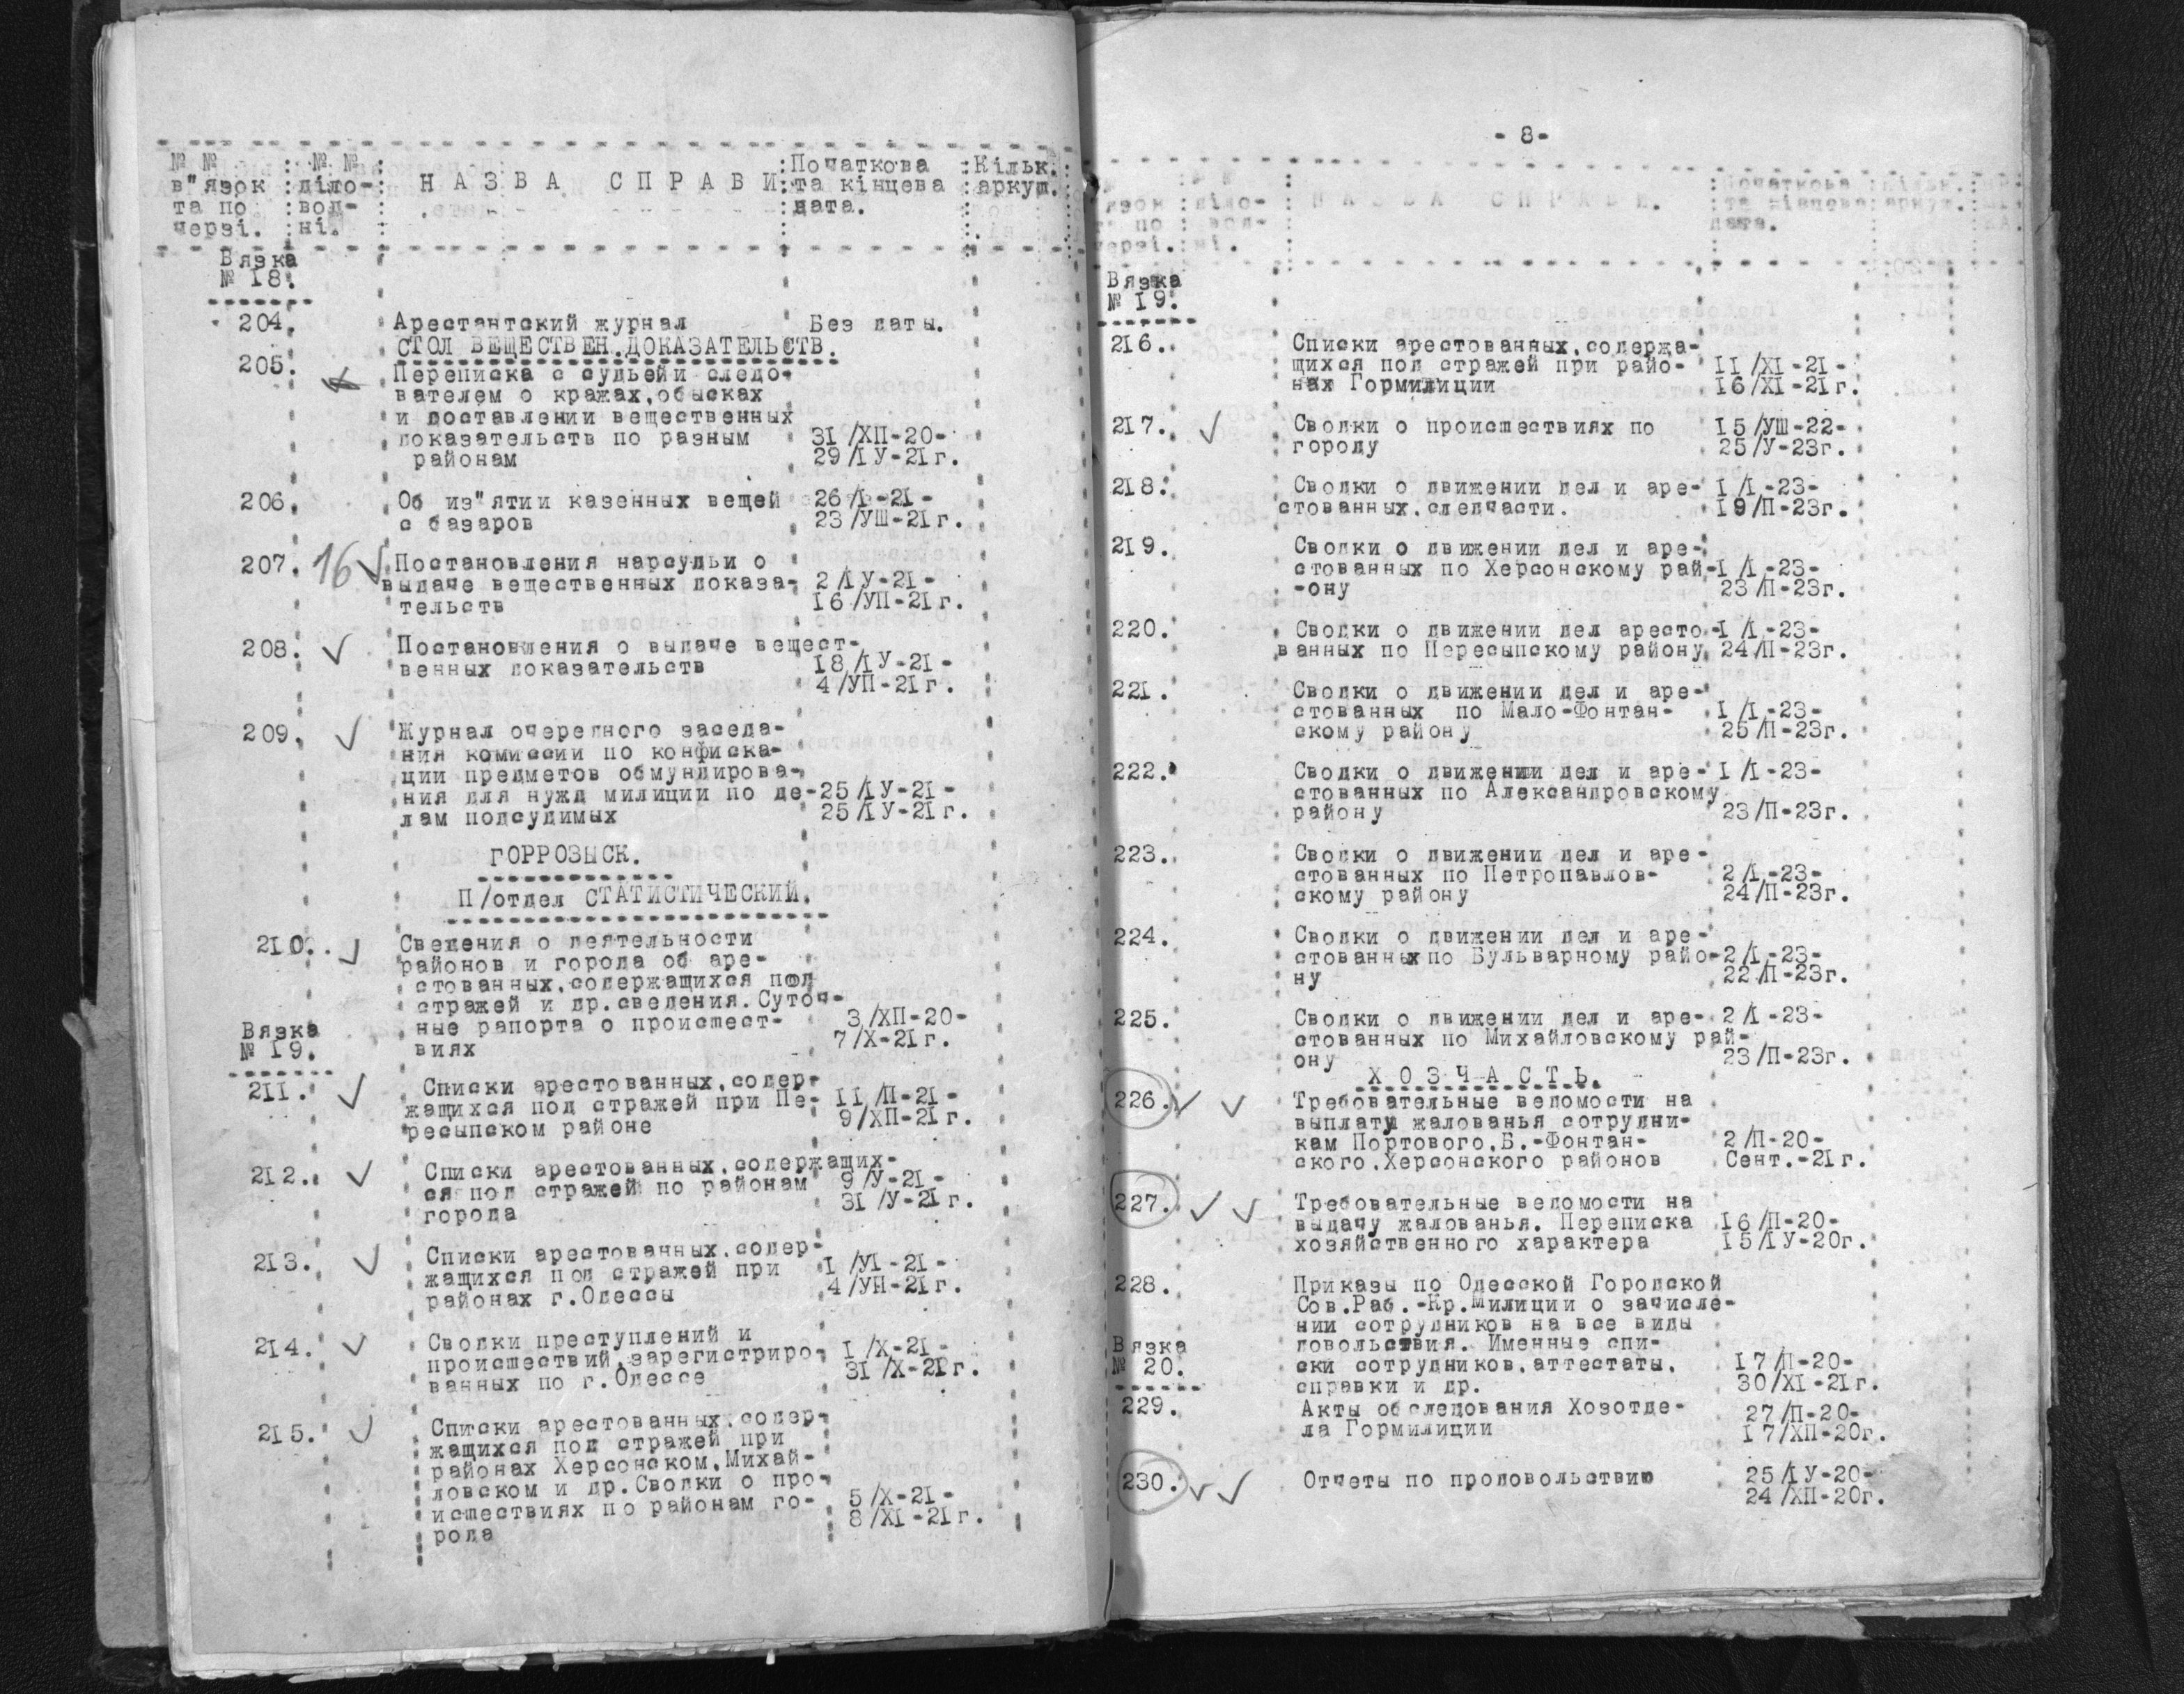 № № : № № : Початкова : Кільк.
в"язок : діло- : Н А З В А С П Р А В И : та кінцева : аркуш.
та по : вод- : дата.
черзі. : ні.
Вязка
№ 18.
204. Арестантский журнал Без даты.
СТОЛ ВЕЩЕСТВЕН.ДОКАЗАТЕЛЬСТВ.
205. Переписка с судьей и следо-
вателем о кражах,обысках
и доставлении вещественных
доказательств по разным 31/ХП-20-
районам 29/1У-21г.
206. Об из"ятии казенных вещей 26/1-21-
с базаров 23/УШ-21г.
207. 16 ✓ Постановления нарсудьи о
выдаче вещественных доказа- 2/1У-21-
тельств 16/УП-21г.
208. ✓ Постановления о выдаче вещест-
венных доказательств 18/1У-21-
4/УП-21г.
209. ✓ Журнал очередного заседа-
ния комиссии по конфиска-
ции предметов обмундирова-
ния для нужд милиции по де- 25/1У-21-
лам подсудимых 25/1У-21г.
ГОРРОЗЫСК.
П/отдел СТАТИСТИЧЕСКИЙ.
210. ✓ Сведения о деятельности
районов и города об аре-
стованных,содержащихся под
стражей и др.сведения.Суточ-
ные рапорта о происшест- 3/ХП-20-
виях 7/Х-21г.
Вязка
№ 19.
211. ✓ Списки арестованных,содер-
жащихся под стражей при Пе- 11/П-21-
ресыпском районе 9/ХП-21г.
212. ✓ Списки арестованных,содержащих-
ся под стражей по районам 9/У-21-
города 31/У-21г.
213. ✓ Списки арестованных,содер-
жащихся под стражей при 1/У1-21-
районах г.Одессы 4/УН-21г.
214. ✓ Сводки преступлений и
происшествий,зарегистриро- 1/Х-21-
ванных по г.Одессе 31/Х-21г.
215. ✓ Списки арестованных,содер-
жащихся под стражей при
районах Херсонском,Михай-
ловском и др.Сводки о про-
исшествиях по районам го- 5/Х-21-
рода 8/Х1-21г.
- 8-
язок : діло- : Н А З В А С П Р А В И. : Початкова : кільк.
та по : вод- : та кінцева : аркуш.
черзі. : ні. : дата.
Вязка
№ 19.
216. Списки арестованных,содержа-
щихся под стражей при райо- 11/Х1-21-
нах Гормилиции 16/Х1-21г.
217. ✓ Сводки о происшествиях по 15/УШ-22-
городу 25/У-23г.
218. Сводки о движении дел и аре- 1/1-23-
стованных.следчасти. 19/П-23г.
219. Сводки о движении дел и аре-
стованных по Херсонскому рай- 1/1-23-
-ону 23/П-23г.
220. Сводки о движении дел аресто- 1/1-23-
ванных по Пересыпскому району 24/П-23г.
221. Сводки о движении дел и аре-
стованных по Мало-Фонтан- 1/1-23-
скому району 25/П-23г.
222. Сводки о движении дел и аре- 1/1-23-
стованных по Александровскому
району 23/П-23г.
223. Сводки о движении дел и аре-
стованных по Петропавлов- 2/1-23-
скому району 24/П-23г.
224. Сводки о движении дел и аре-
стованных по Бульварному райо- 2/1-23-
ну 22/П-23г.
225. Сводки о движении дел и аре- 2/1-23-
стованных по Михайловскому рай-
ону 23/П-23г.
Х О З Ч А С Т Ь.
226. ✓ ✓ Требовательные ведомости на
выплату жалованья сотрудни-
кам Портового,Б.-Фонтан- 2/П-20-
ского,Херсонского районов Сент.-21г.
227. ✓ ✓ Требовательные ведомости на
выдачу жалованья. Переписка 16/П-20-
хозяйственного характера 15/1У-20г.
228. Приказы по Одесской Городской
Сов.Раб.-Кр.Милиции о зачисле-
нии сотрудников на все виды
довольствия. Именные спи-
ски сотрудников,аттестаты, 17/П-20-
справки и др. 30/Х1-21г.
Вязка
№ 20.
229. Акты обследования Хозотде- 27/П-20-
ла Гормилиции 17/ХП-20г.
230. ✓ ✓ Отчеты по продовольствию 25/1У-20-
24/ХП-20г.